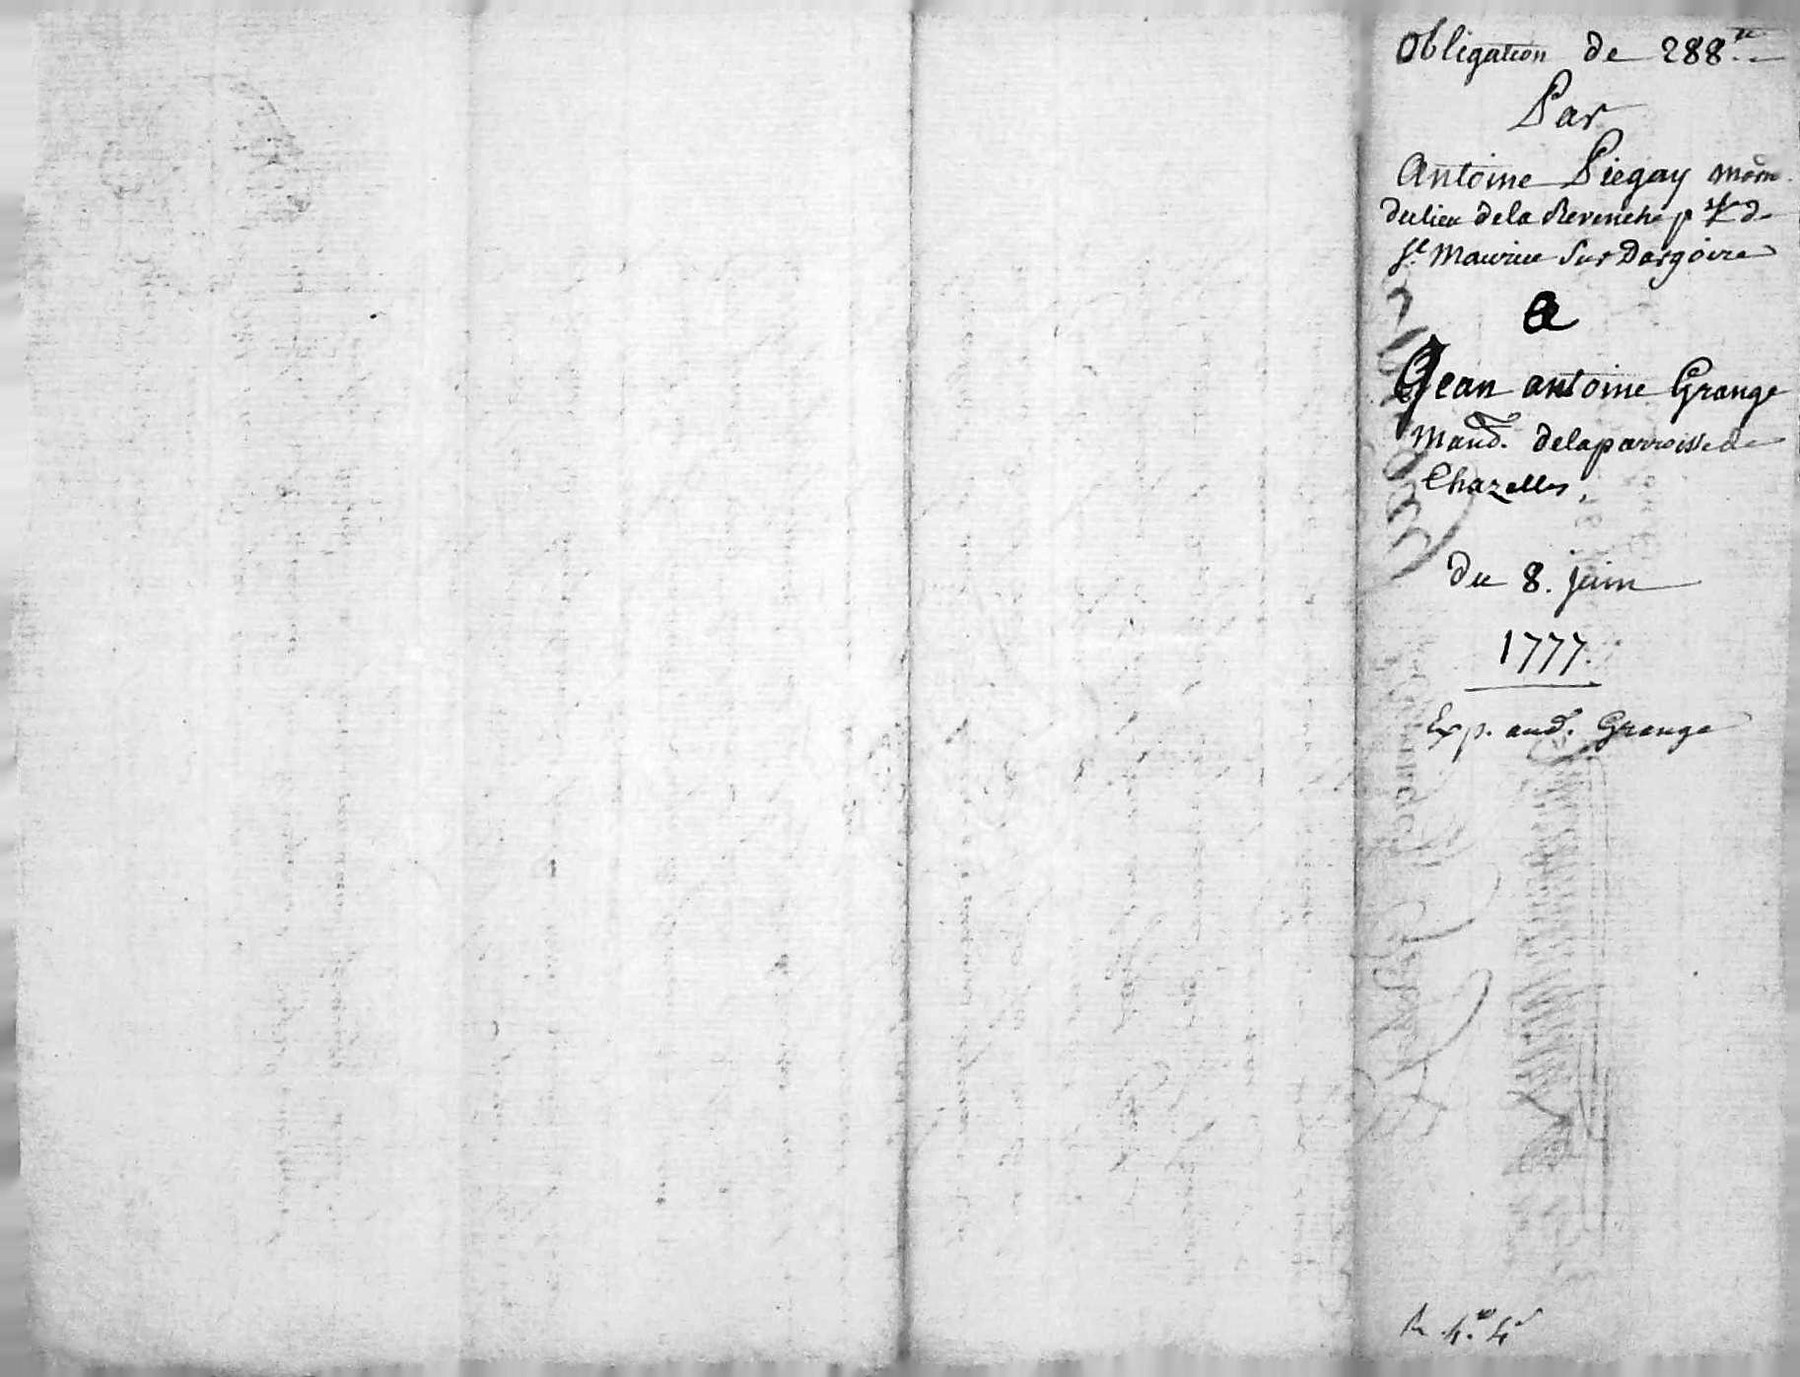 Obligation de 288ᵗᵗ
Par
Antoine Piegay
du lieu de la Revenche psse de
St. Maurice Sur Dargoire
a
Jean antoine Grange
mand. de la parroisse de
Chazelles,
du 8. juin
1777.
Exp. aud. Grange